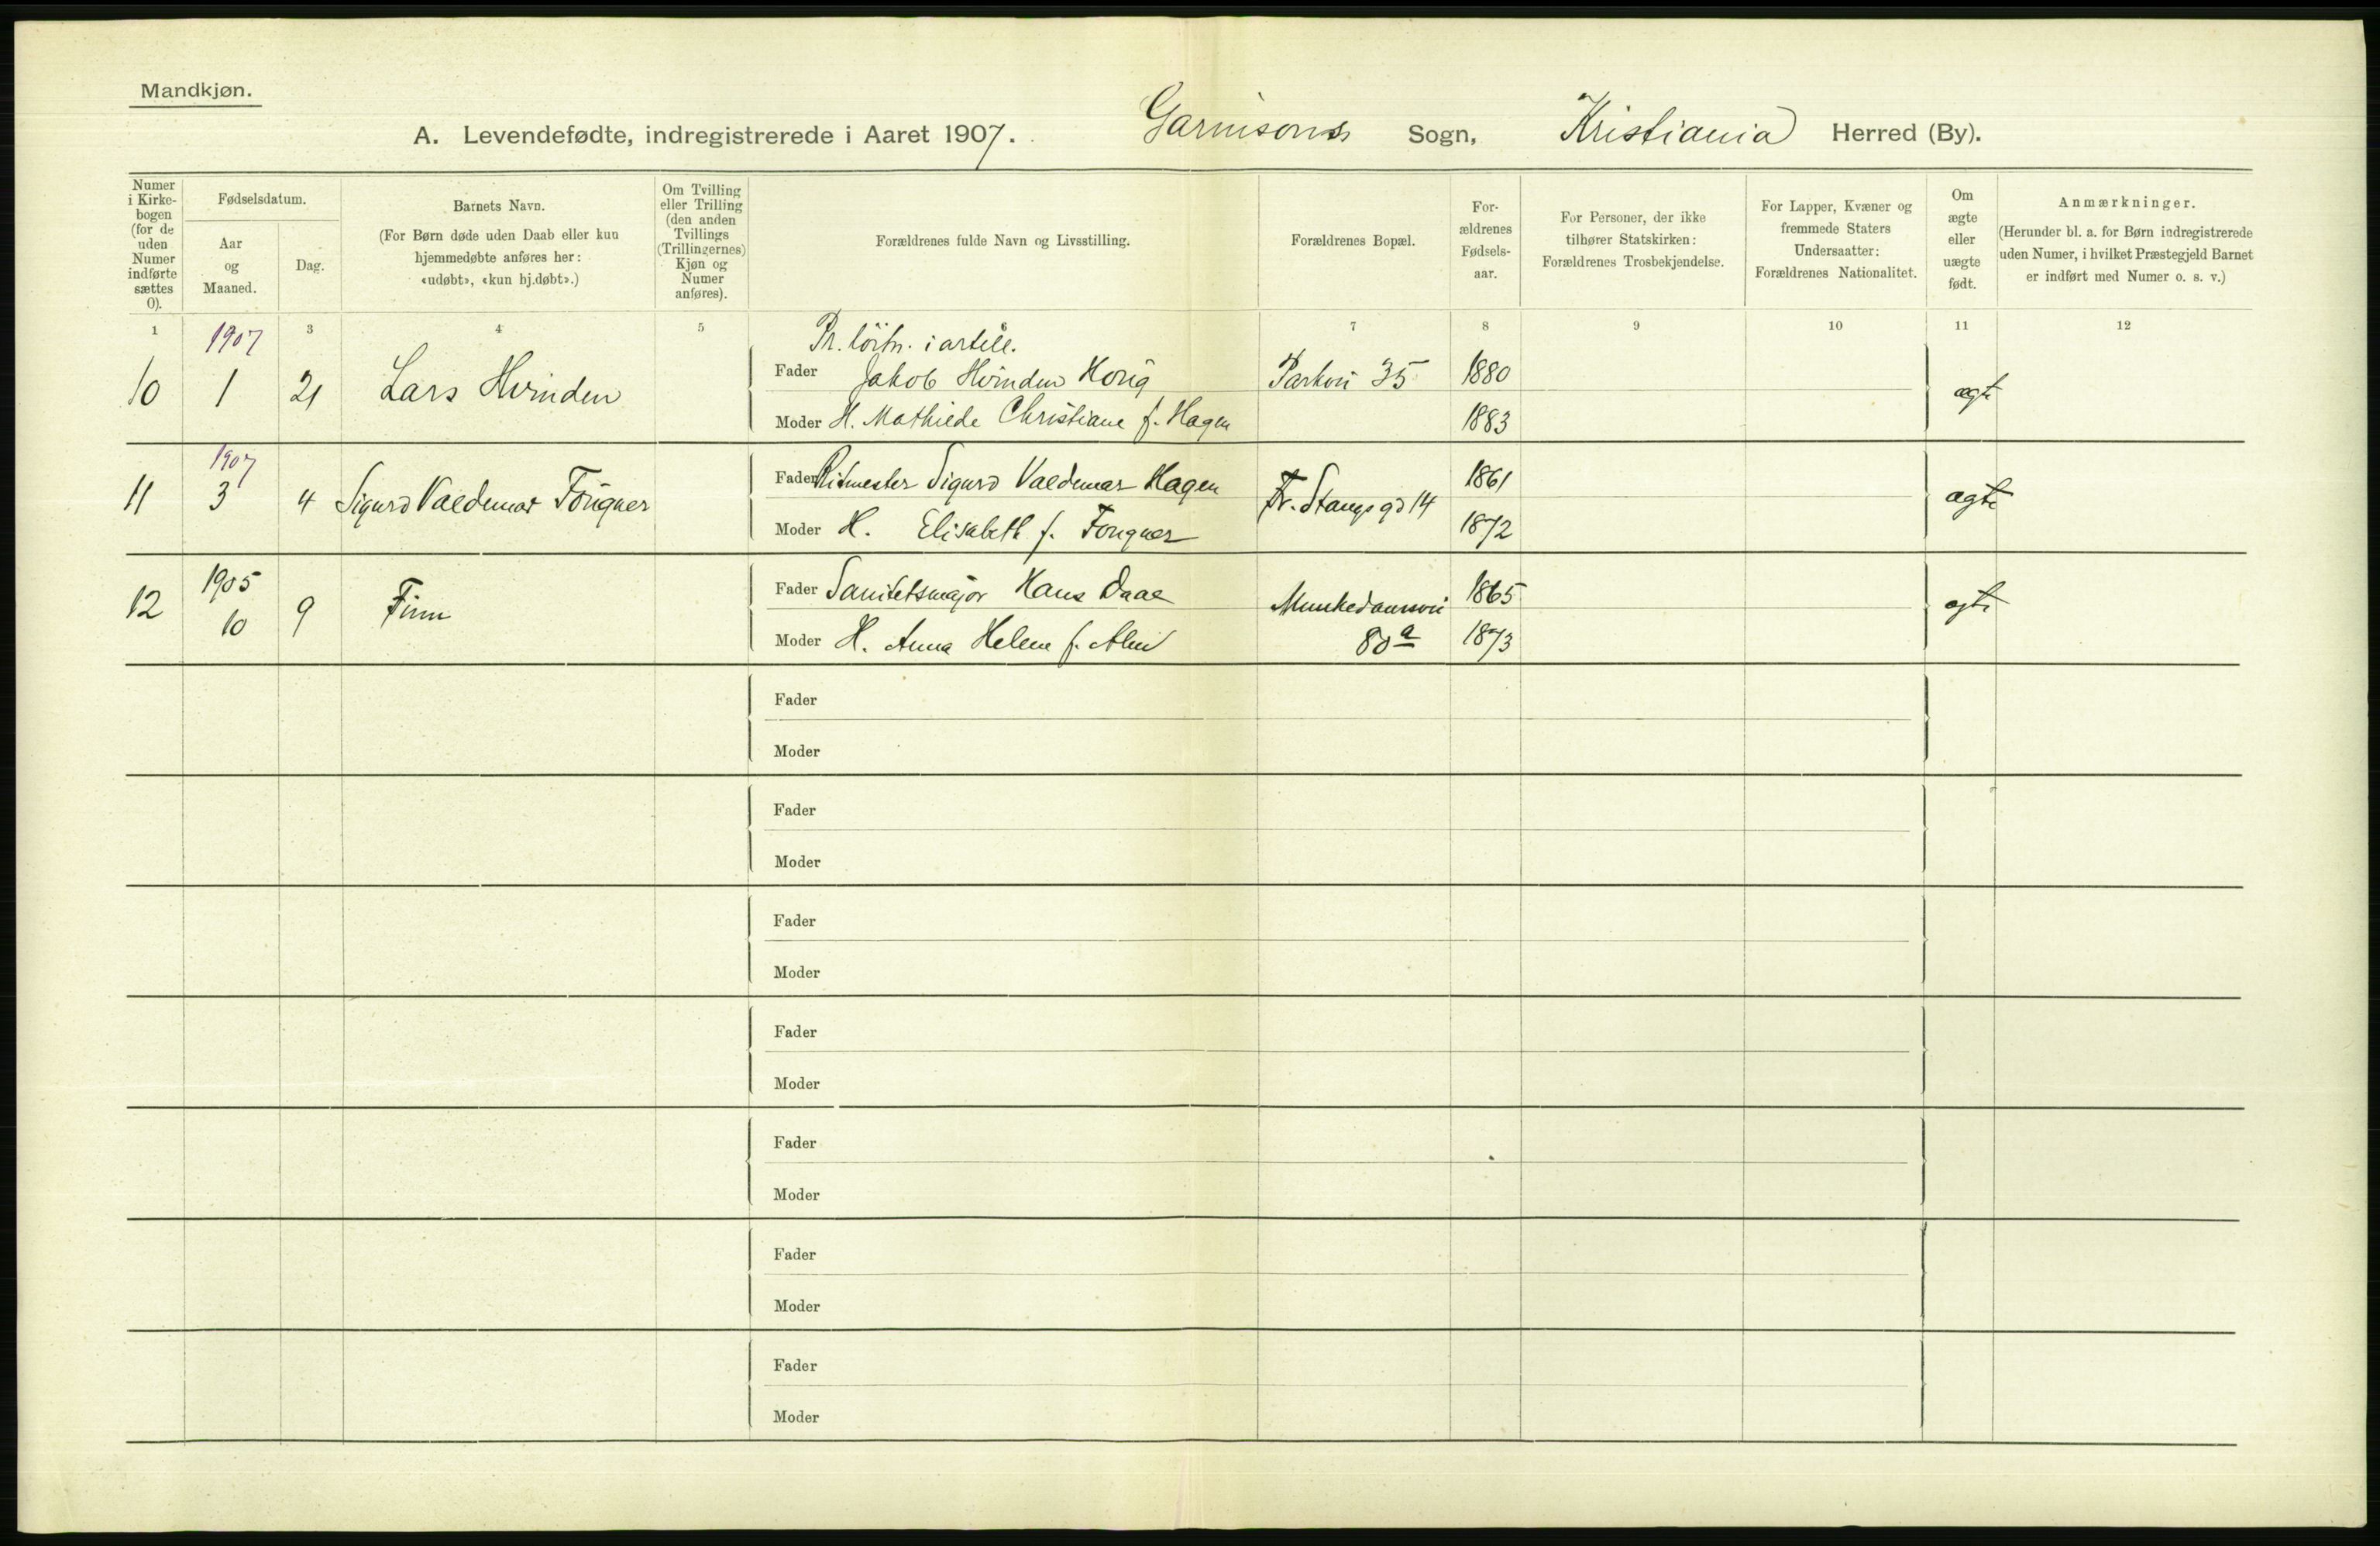 Mandkjøn.
A. Levendefødte, indregistrerede i Aaret 1907. Garnisons Sogn, Kristiania Herred (By).
Numer i Kirke-bogen (for de uden Numer indførte sættes 0).
Fødselsdatum.
Aar og Maaned.
Dag.
Barnets Navn.
(For Børn døde uden Daab eller kun
hjemmedøbte anføres her:
«udøbt», «kun hj.døbt».)
Om Tvilling
eller Trilling
(den anden
Tvillings
(Trillingernes)
Kjøn og
Numer
anføres).
Forældrenes fulde Navn og Livsstilling.
Forældrenes Bopæl.
For-
ældrenes
Fødsels-
aar.
For Personer, der ikke
tilhører Statskirken:
Forældrenes Trosbekjendelse.
For Lapper, Kvæner og
fremmede Staters
Undersaatter:
Forældrenes Nationalitet.
Om
ægte
eller
uægte
født.
Anmærkninger.
(Herunder bl. a. for Børn indregistrerede
uden Numer, i hvilket Præstegjeld Barnet
er indført med Numer o. s. v.)
1 3 4 5 7 8 9 10 11 12
1907 Pr. löitn. i artill.
10 1 21 Lars Hvinden Fader Jakob Hvinden Parkvei 35 1880 ægte
Moder H. Mathilde Christiane f. Hagen 1883
1907
11 3 4 Sigurd Valdemar Fougner Fader Ritmester Sigurd Valdemar Hagen Fr. Stangs gd 14 1861 ægte
Moder H. Elisabeth f. Fougner 1872
12 1905 10 9 Finn Fader Sanitetsmajor Hans Daae Munkedamsvei 80a 1865 ægte
Moder H. Anna Helene f. 1873
Fader
Moder
Fader
Moder
Fader
Moder
Fader
Moder
Fader
Moder
Fader
Moder
Fader
Moder